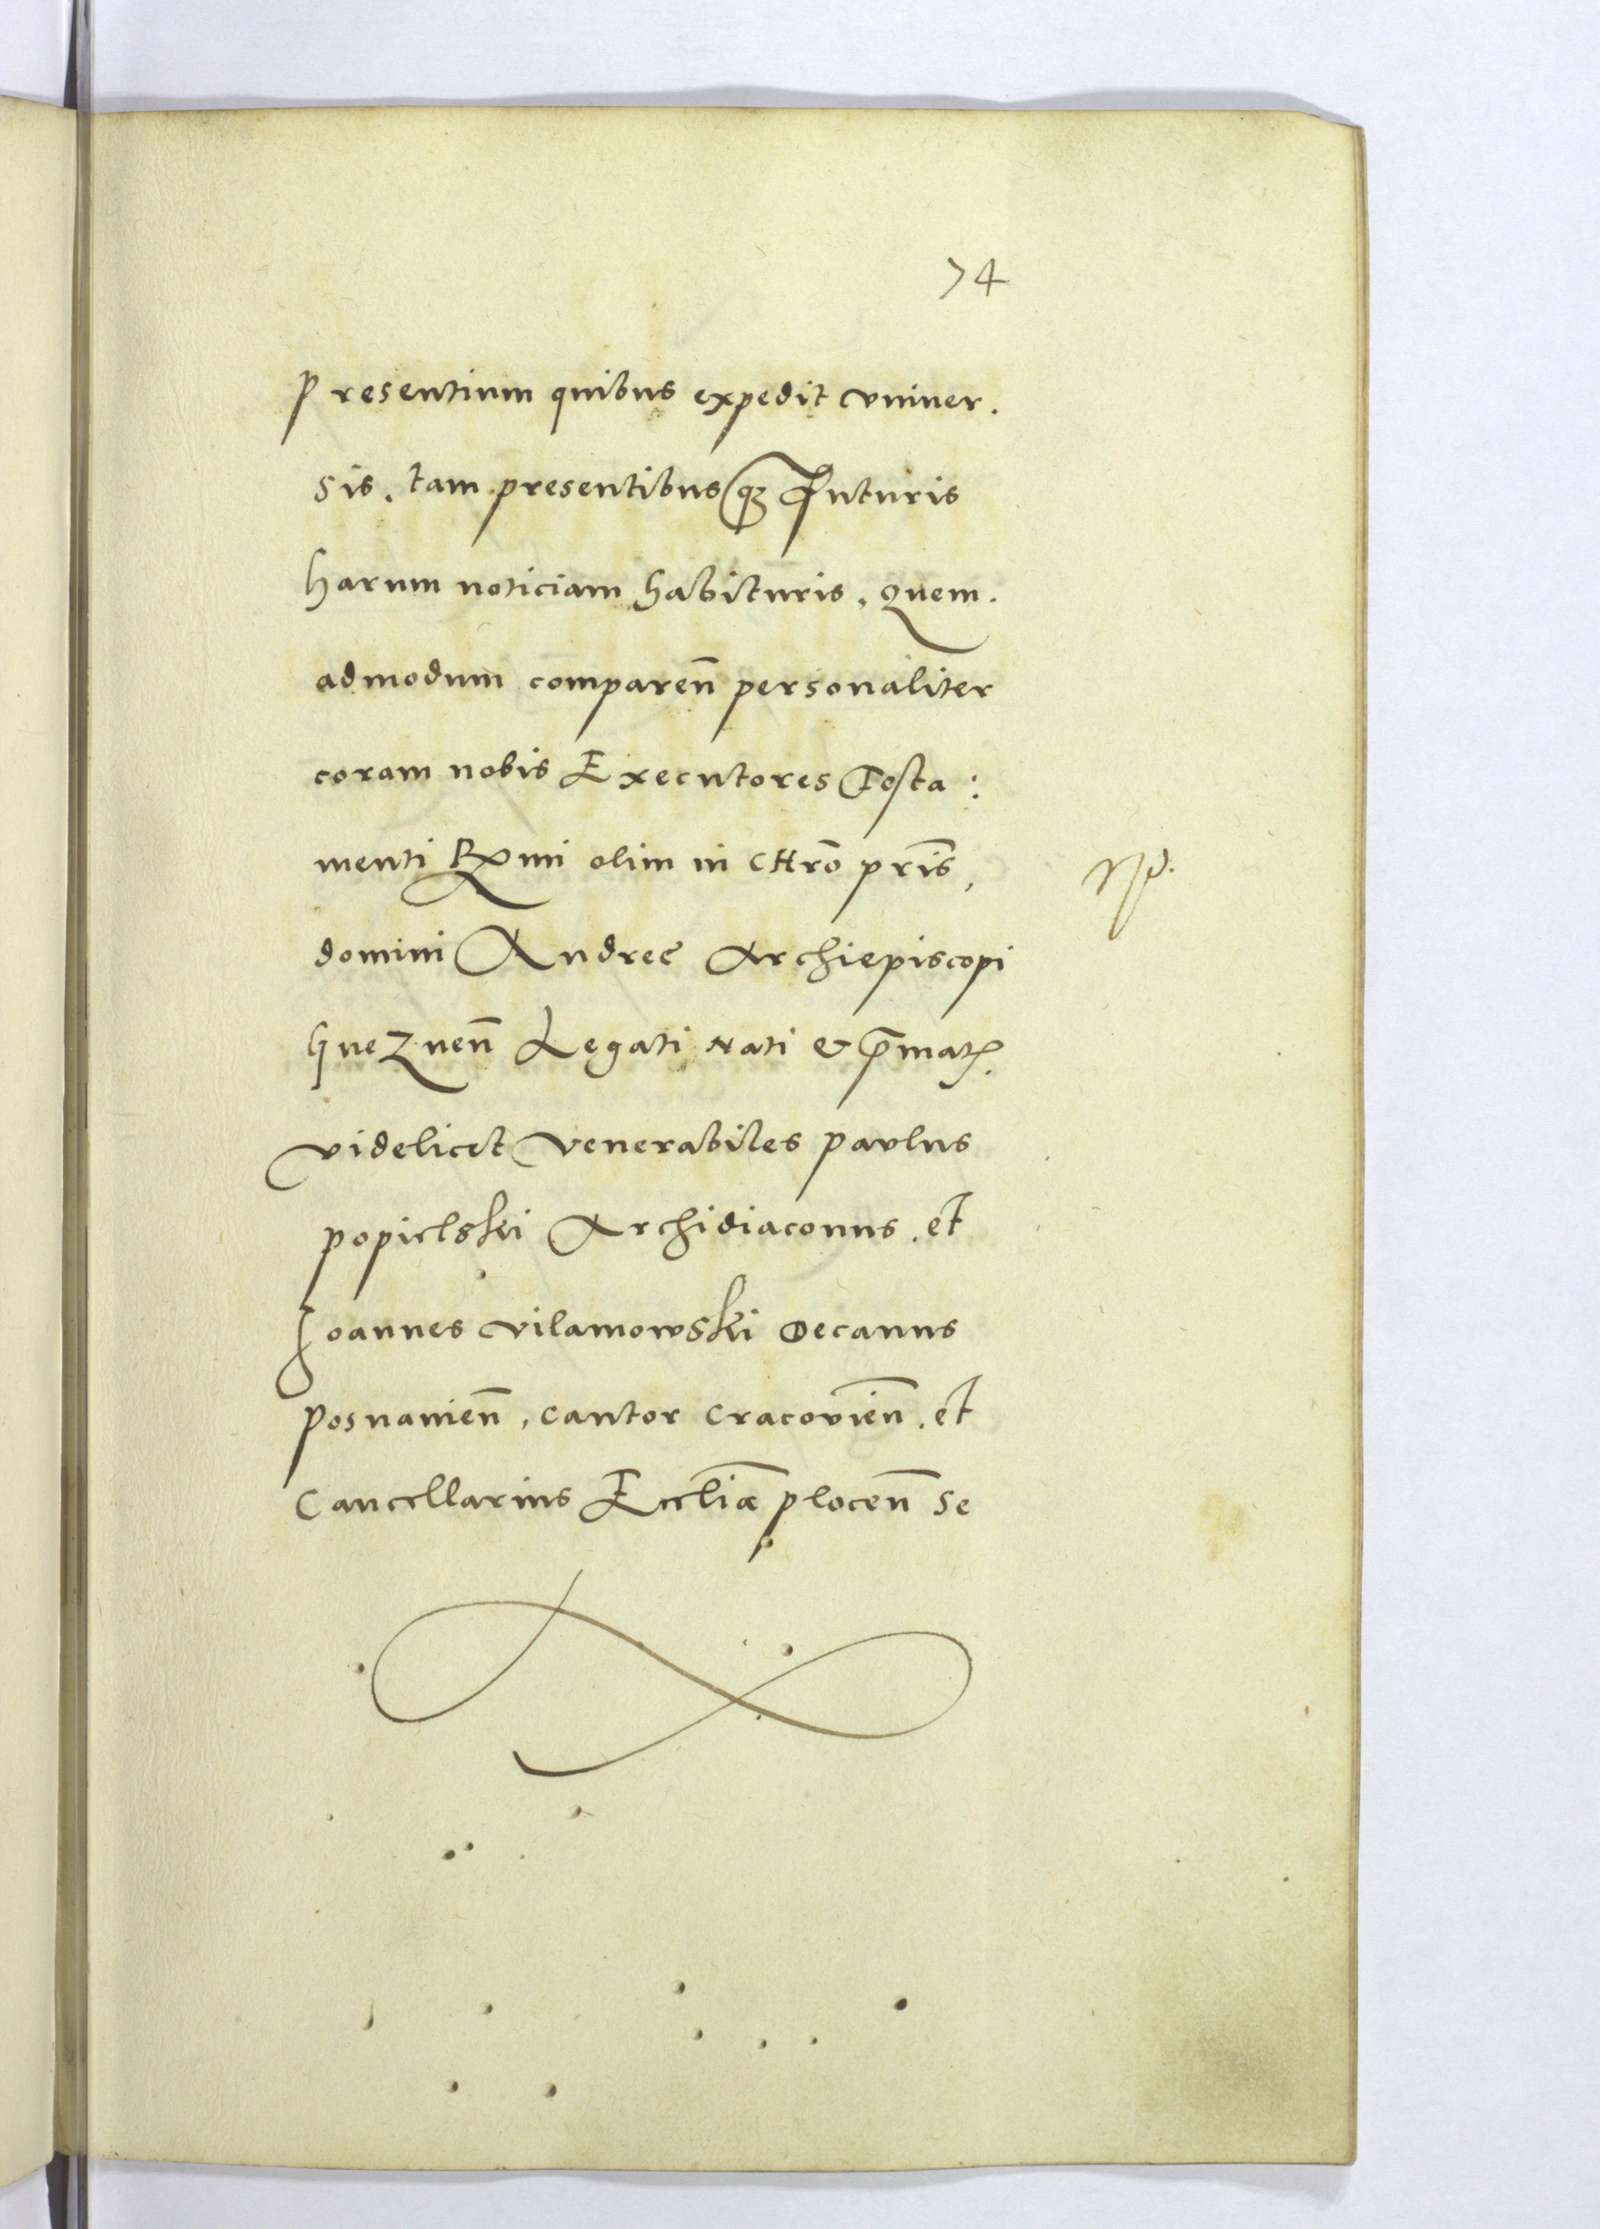 74
presentium quibus expedit vniuer.
sis, tam presentibus qz Futuris
harum noticiam habituris, Quem.
admodum comparen̄ personaliter
coram nobis Executores Testa:
menti Rx̄mi olim in CHrō pris̄,
domini Andreę Archiepiscopi
gneznen̄ Legati Nati &
videlicet Venerabiles paulus
popielski Archidiaconus, et
Joannes vilamowski Decanus
posnanien̄, Cantor Cracovien̄, et
Cancellarius Eccliǣ plocen̄ se